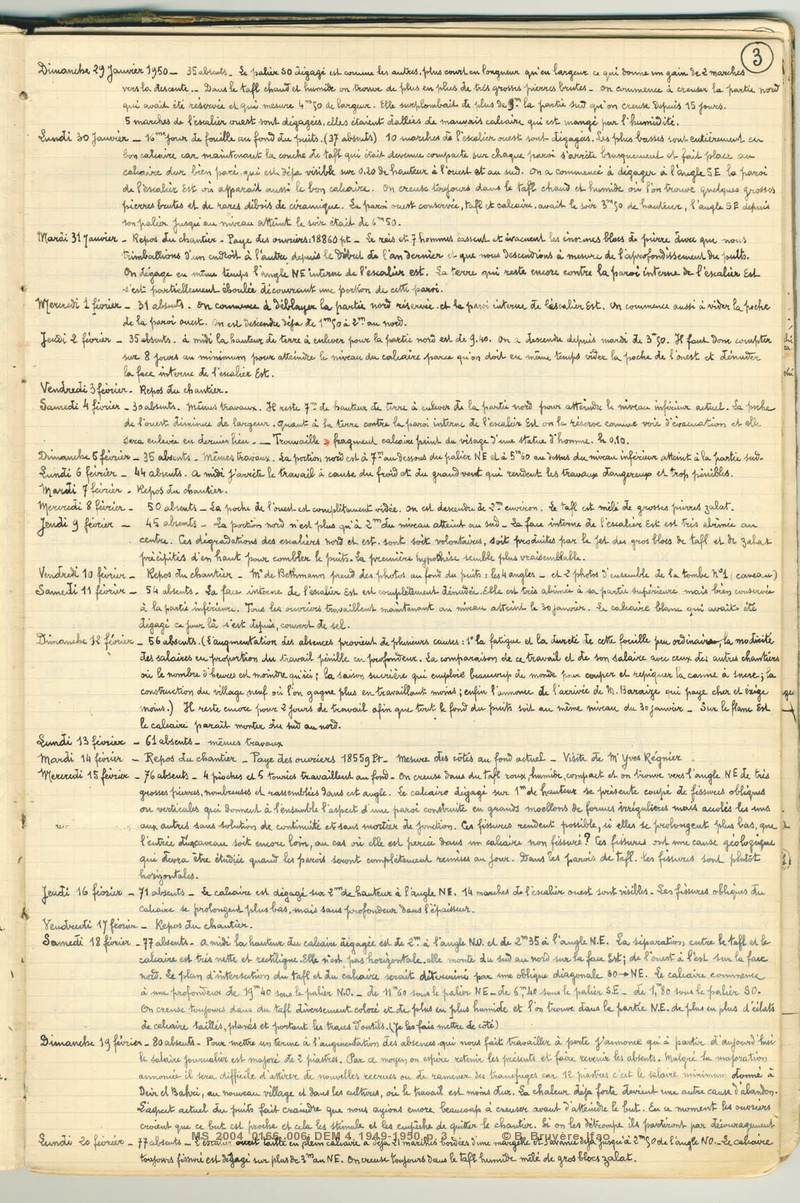 3
Dimanche 29 Janvier 1950 _ 35 absents _ Le palier SO dégagé est comme les autres, plus court en longueur qu'en largeur ce qui donne un gain de 2 marches
vers la descente. _ Dans le tafl chaud et humide on trouve de plus en plus de très grosses pierres brutes _ On commence à creuser la partie nord
qui avait été réservée et qui mesure 4m50 de largeur. Elle surplombait de plus de 9m la partie sud qu'on creuse depuis 15 jours.
5 marches de l'escalier ouest sont dégagées. elles étaient dallées de mauvais calcaire qui est mangé par l'humidité.
Lundi 30 Janvier _ 16me jour de fouille au fond du puits. (37 absents) 10 marches de l'escalier ouest sont dégagées. Les plus basses sont entièrement en
bon calcaire car maintenant la couche de tafl qui était devenue compacte sur chaque paroi s'arrête brusquement et fait place au
calcaire dur bien paré qui est déjà visible sur 0.20 de hauteur à l'ouest et au sud. On a commencé à dégager à l'angle SE la paroi
de l'escalier Est où apparaît aussi le bon calcaire. On creuse toujours dans le tafl chaud et humide où l'on trouve quelques grosses
pierres brutes et de rares débris de céramique. La paroi ouest conservée, tafl et calcaire, avait le soir 3m50 de hauteur, l'angle SE depuis
son palier jusqu'au niveau atteint le soir était de 6m50.
Mardi 31 Janvier _ Repos du chantier _ Paye des ouvriers: 18860 pt _ Le reis et 7 hommes cassent et évacuent les énormes blocs de pierre dure que nous
trimballions d'un endroit à l'autre depuis le début de l'an dernier et que nous descendions à mesure de l'approfondissement du puits.
On dégage en même temps l'angle NE interne de l'escalier est. La terre qui reste encore contre la paroi interne de l'escalier Est
s'est partiellement éboulée découvrant une portion de cette paroi.
Mercredi 1 février _ 31 absents. On commence à déblayer la partie nord réservée et la paroi interne de l'escalier Est. On commence aussi à vider la poche
de la paroi ouest. On est descendu déjà de 1m50 à 2m au nord.
Jeudi 2 février _ 35 absents. à midi la hauteur de terre à enlever pour la partie nord est de 9.40. On a descendu depuis mardi de 3m50. Il faut donc compter
sur 8 jours au minimum pour atteindre le niveau du calcaire parce qu'on doit en même temps vider la poche de l'ouest et dénuder
la face interne de l'escalier Est.
Vendredi 3 février _ Repos du chantier.
Samedi 4 février _ 30 absents. Mêmes travaux. Il reste 7m de hauteur de terre à enlever de la partie nord pour atteindre le niveau inférieur actuel. La poche
de l'ouest diminue de largeur. Quant à la terre contre la paroi interne de l'escalier Est on la réserve comme voie d'évacuation et elle
sera enlevée en dernier lieu. _ Trouvaille fragment calcaire peint du visage d'une statue d'homme. h. 0.10.
Dimanche 5 février _ 35 absents _ Mêmes travaux. La portion nord est à 7m au dessous du palier NE et à 5m50 au dessus du niveau inférieur atteint à la partie sud.
Lundi 6 février _ 44 absents. à midi j'arrête le travail à cause du froid et du grand vent qui rendent les travaux dangereux et trop pénibles.
Mardi 7 février _ Repos du chantier.
Mercredi 8 février _ 50 absents _ La poche de l'ouest est complètement vidée. On est descendu de 2m environ. Le tafl est mêlé de grosses pierres zalat.
Jeudi 9 février _ 45 absents _ La portion nord n'est plus qu'à 2m du niveau atteint au sud _ La face interne de l'escalier Est est très abimée au
centre. Ces dégradations des escaliers nord et est sont soit volontaires, soit produites par le jet des gros blocs de tafl et de zalat
précipités d'en haut pour combler le puits. La première hypothèse semble plus vraisemblable.
Vendredi 10 février _ Repos du chantier _ Mr de Bethmann prend des photos au fond du puits: les 4 angles _ et 2 photos d'ensemble de la tombe N°1 (caveau)
Samedi 11 février _ 54 absents. La face interne de l'escalier Est est complètement dénudée. Elle est très abimée à sa partie supérieure mais bien conservée
à la partie inférieure. Tous les ouvriers travaillent maintenant au niveau atteint le 30 janvier. Le calcaire blanc qui avait été
dégagé ce jour là s'est depuis, couvert de sel.
Dimanche 12 février _ 56 absents. (l'augmentation des absences provient de plusieurs causes: 1° la fatigue et la dureté de cette fouille peu ordinaire, la modicité
des salaires en proportion du travail pénible en profondeur. La comparaison de ce travail et de son salaire avec ceux des autres chantiers
où le nombre d'heures est moindre qu'ici; la saison sucrière qui emploie beaucoup de monde pour couper et repiquer la canne à sucre; la
construction du village neuf où l'on gagne plus en travaillant moins; enfin l'annonce de l'arrivée de M. Baraize qui paye cher et exige
moins.) Il reste encore pour 2 jours de travail afin que tout le fond du puits soit au même niveau du 30 janvier _ Sur le flanc Est
le calcaire parait monter du sud au nord.
Lundi 13 février _ 61 absents _ mêmes travaux
Mardi 14 février _ Repos du chantier _ Paye des ouvriers 18559 Pt _ Mesure des côtés au fond actuel _ Visite de Mr Yves Régnier
Mercredi 15 février _ 76 absents _ 4 pioches et 5 touries travaillent au fond _ On creuse dans du tafl roux, humide, compact et on trouve vers l'angle NE de très
grosses pierres, nombreuses et rassemblées dans cet angle. Le calcaire dégagé sur 1m de hauteur se présente coupé de fissures obliques
ou verticales qui donnent à l'ensemble l'aspect d'une paroi construite en grands moellons de formes irrégulières mais accolés les uns
aux autres sans solution de continuité et sans mortier de jonction. Ces fissures rendent possible, si elles se prolongent plus bas, que
l'entrée du caveau soit encore loin, au cas où elle est percée dans un calcaire non fissuré? Ces fissures ont une cause géologique
qui devra être étudiée quand les parois seront complètement remises au jour. Dans les parois de tafl les fissures sont plutôt
horizontales.
Jeudi 16 février _ 71 absents _ Le calcaire est dégagé sur 2m de hauteur à l'angle NE. 14 marches de l'escalier ouest sont visibles _ Les fissures obliques du
calcaire se prolongent plus bas, mais sans profondeur dans l'épaisseur.
Vendredi 17 février _ Repos du chantier.
Samedi 18 février _ 77 absents _ à midi la hauteur du calcaire dégagée est de 2m à l'angle N.O. et de 2m35 à l'angle N.E. La séparation entre le tafl et le
calcaire est très nette et rectiligne. Elle n'est pas horizontale. elle monte du sud au nord sur la face Est; de l'ouest à l'est sur la face
nord. Le plan d'intersection du tafl et du calcaire serait déterminé par une oblique diagonale SO→NE. Le calcaire commence
à une profondeur de 19m40 sous le palier N.O. _ de 11m60 sous le palier NE _ de 6m,40 sous le palier S.E _ de 1,80 sous le palier SO.
On creuse toujours dans du tafl diversement coloré et de plus en plus humide et l'on trouve dans la partie N.E. de plus en plus d'éclats
de calcaire taillés, planés et portant les traces d'outils. (Je les fais mettre de côté)
Dimanche 19 février _ 80 absents _ Pour mettre un terme à l'augmentation des absences qui nous fait travailler à perte j'annonce qu'à partir d'aujourd'hui
le salaire journalier est majoré de 2 piastres. Par ce moyen on espère retenir les présents et faire revenir les absents. Malgré la majoration
annoncée il sera difficile d'attirer de nouvelles recrues ou de ramener des transfuges car 12 piastres c'est le salaire minimum donné à
Deir el Bahri, au nouveau village et dans les cultures, où le travail est moins dur. La chaleur déjà forte devient une autre cause d'abandon.
L'aspect actuel du puits fait craindre que nous ayions encore beaucoup à creuser avant d'atteindre le but. En ce moment les ouvriers
croient que ce but est proche et cela les stimule et les empêche de quitter le chantier. Si on les détrompe ils partiront par découragement
Lundi 20 février _ 77 absents _ L'escalier ouest taillé en plein calcaire a déjà 21 marches bordées d'une margelle et descend déjà jusqu'à 2m50 de l'angle NO. _ Le calcaire
MS_2004_0166_006: DEM 4, 1949-1950, p. 3 © B. Bruyère, Ifao
toujours fissuré est dégagé sur plus de 3m au NE. On creuse toujours dans le tafl humide mêlé de gros blocs zalat.